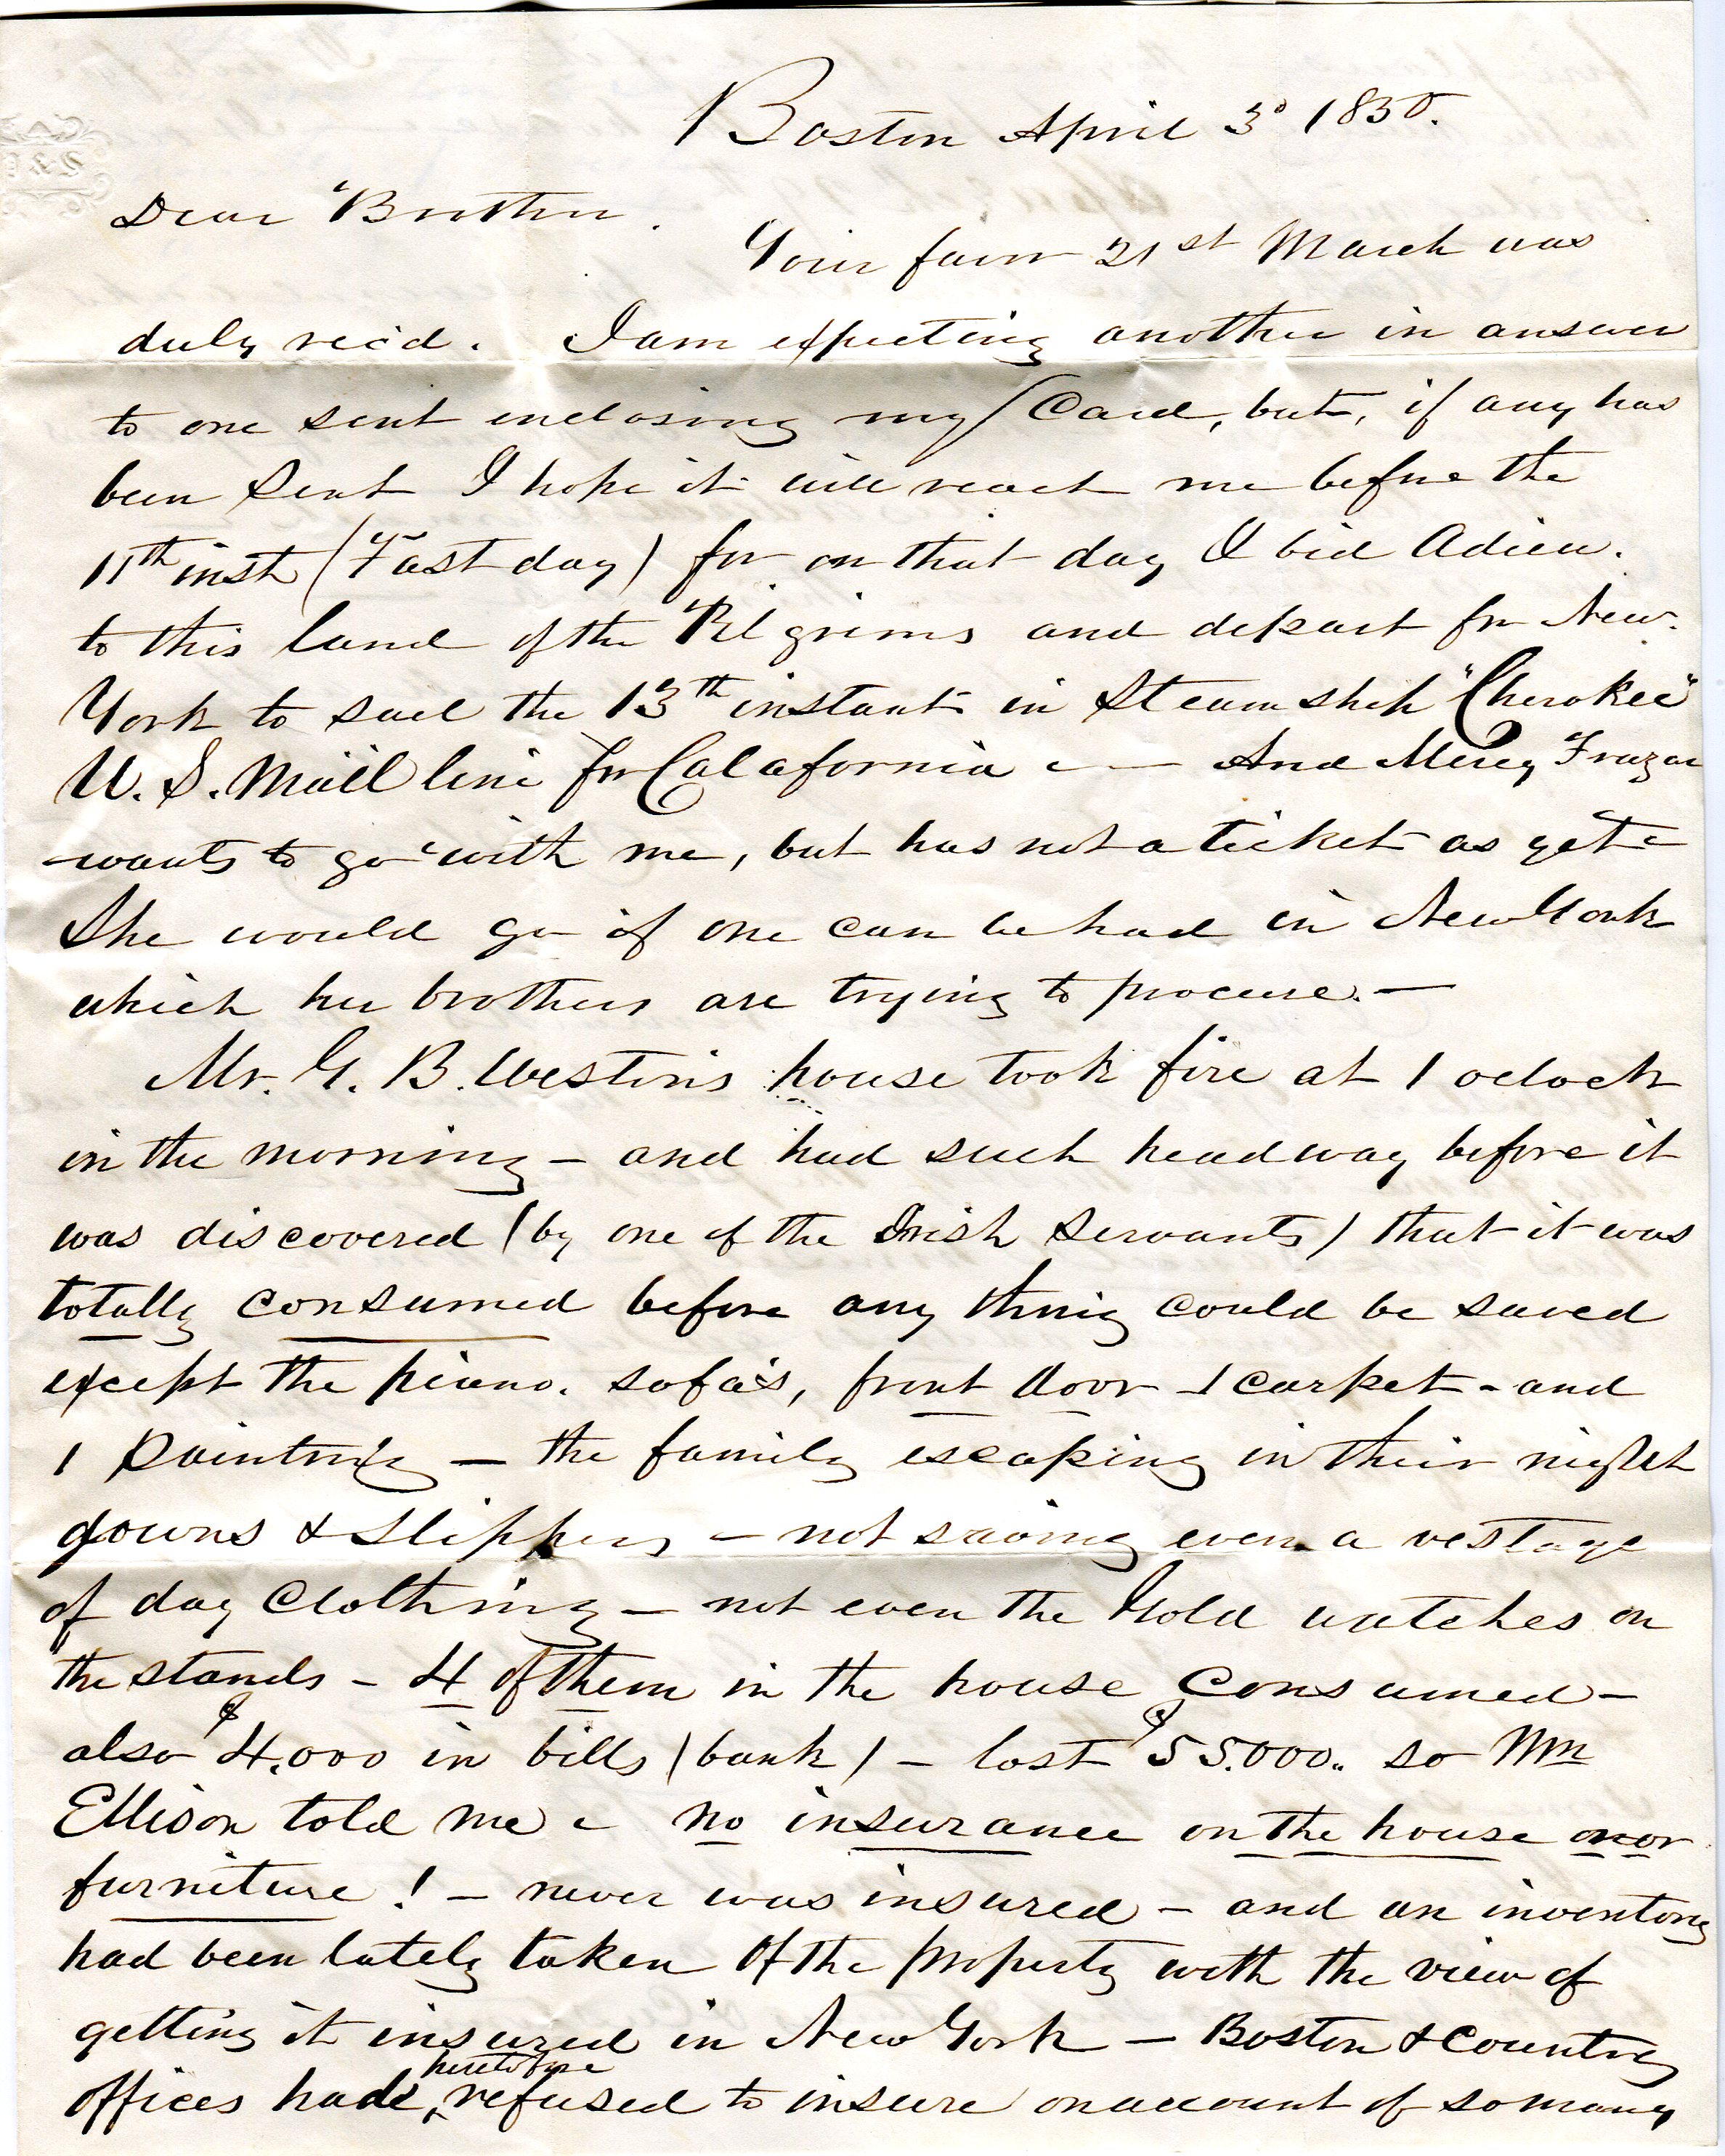 Boston April 3d 1850.
Dear Brother.
Your favor 21st March was
duly rec'd. I am expecting another in answer
to one sent enclosing my Card, but, if any has
been sent I hope it will reach me before the
11th inst (Fast day) for on that day I bid Adieu.
to this land of the Pilgrims and depart for New-
York to sail the 13th instant in Steam ship "Cherokee"
U.S. Mail line for Calafornia — And Mercy Frazar
wants to go with me, but has not a ticket as yet -
She would go if one can be had in New York
which her brothers are trying to procure. —
Mr. G. B. Weston's house took fire at 1 oclock
in the morning - and had such headway before it
was discovered (by one of the Irish Servants) that it was
totally consumed before any thing could be saved
except the piano. sofa's, front door - 1 carpet - and
1 Painting — the family escaping in their night
gowns & slippers - not saving even a vestage
of day Clothing - not even the Gold watches on
the stands - 4 of them in the house consumed -
also $4,000 in bills (bank) - lost $55.000.. so Wm
Ellison told me - no insurance on the house or
furniture! - never was insured - and an inventory
had been lately taken of the property with the view of
getting it insured in New York — Boston & Country
heretofore
offices had, refused to insure on account of so many